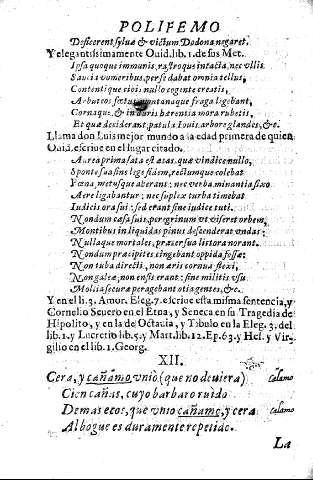 POLIFEMO
Deficerent sylvæ & victum Dodona negaret.
Y elegantissimamente Ouid. lib. 1. de sus Met.
Ipsa quoque immunis, rastroque intacta, nec vllis
Saucia vomeribus, per se dabat omnia tellus,
Contentique cibis nullo cogente creatis,
Arbuteos fœtus, montanaque fraga legebant,
Cornaque, & in duris hærentia mora rubetis,
Et quæ deciderant, patula Iouis, arbore glandes, &c.
Llama don Luis mejor mundo a la edad primera de quien
Ouid. escriue en el lugar citado.
Aurea prima sata est ætas, quæ vindice nullo,
Sponte sua sine lege fidem, rectumque colebat
Pœna, metusque aberant: nec verba minantia fixo
Aere ligabantur: nec suplex turba timebat
Iudicis ora sui: sed erant sine iudice tuti.
Nondum cæsa suis, peregrinum vt viseret orbem,
Montibus in liquidas pinus descenderat vndas:
Nullaque mortales, præter sua littora norant.
Nondum præcipites cingebant oppida fossæ:
Non tuba directi, non æris cornua flexi,
Non galeæ, non ensis erant: sine militis vsu
Mollia securæ peragebant otia gentes, &c.
Y en el li. 3. Amor. Eleg. 7. escriue esta misma sentencia, y
Cornelio Seuero en el Etna, y Seneca en su Tragedia de
Hipolito, y en la de Octauia, y Tibulo en la Eleg. 3. del
lib. 1. y Lucretio lib. 5. y Mart. lib. 12. Ep. 63. y Hes. y Vir-
gilio en el lib. 1. Georg.
XII.
Cera, y cañamo vnio (que no deuiera) calamo
Cien cañas, cuyo barbaro ruido
De mas ecos, que vnio cañamo, y cera calamo
Albogues es duramente repetido.
La